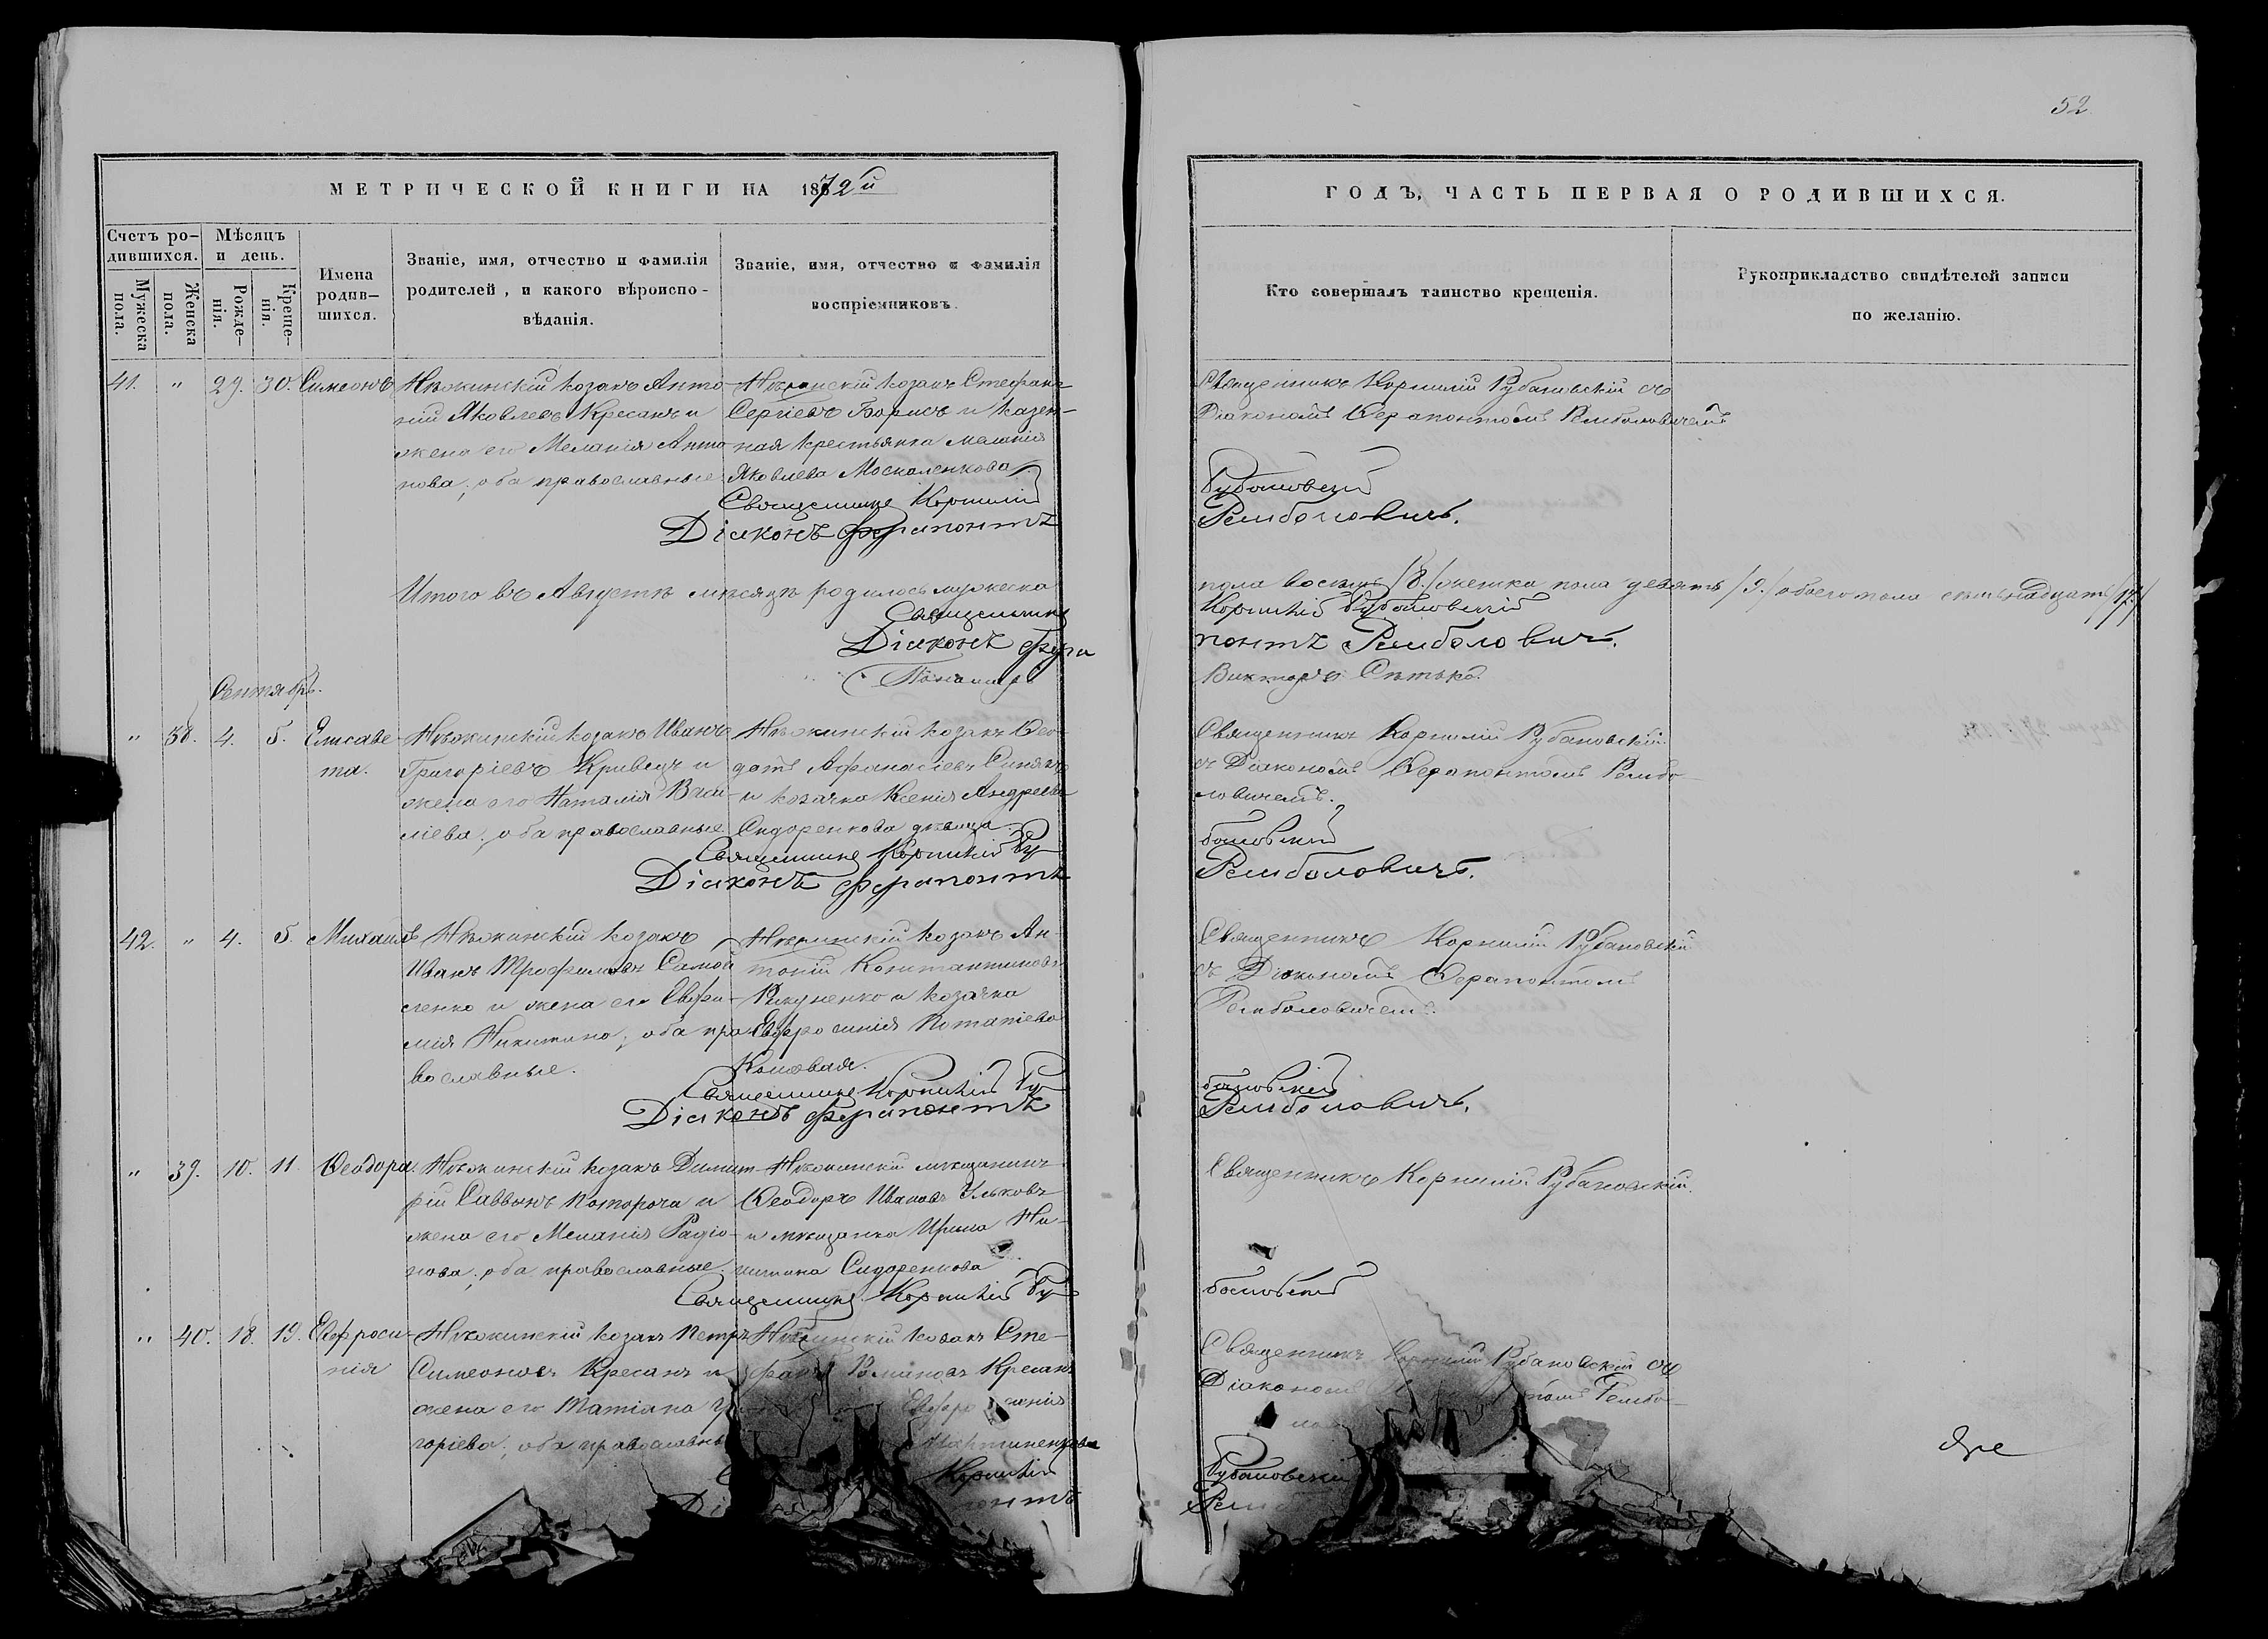 52
МЕТРИЧЕСКОЙ КНИГИ НА 1872й
ГОДЪ, ЧАСТЬ ПЕРВАЯ О РОДИВШИХСЯ.
Счетъ ро-
дившихся.
Мужеска пола.
Женска пола.
Мѣсяцъ
и день.
Рожде-
нія.
Креще-
нія.
Имена
родив-
шихся.
Званіе, имя, отчество и фамилія
родителей, и какого вѣроиспо-
вѣданія.
Званіе, имя, отчество и фамилія
воспріемниковъ.
Кто совершалъ таинство крещенія.
Рукоприкладство свидѣтелей записи
по желанію.
41. " 29. 30. Симеонъ
Нѣжинскій козакъ Анто-
ній Яковлевъ Кресанъ и
жена его Меланія Анто
нова, оба православные
Нѣжинскій козакъ Стефанъ
Сергіевъ Борисъ и казен-
ная крестьянка Меланія
Яковлева Москаленкова
Священникъ Корнилій
Діаконъ Ферапонтъ
Священникъ Корнилій Рубановскій съ
Діакономъ Ѳерапонтомъ Рембаловичемъ
Рубановскій
Рембаловичъ.
Итого въ Августѣ мѣсяцѣ родилось мужеска
пола восемь /8./ женска пола девять /9./ обоего пола семьнадцать /17./
Священникъ
Корнилій Рубановскій
Діаконъ Фера
понтъ Рембаловичъ.
Пономарь
Викторъ
Сентябрь.
" 38. 4. 5. Елисаве-
та.
Нѣжинскій козакъ Иванъ
Григоріевъ Кривецъ и
жена его Наталія Васи-
ліева, оба православные.
Нѣжинскій козакъ Ѳео-
дотъ Афанасіевъ Синякъ
и козачка Ксенія Андреева
Сидоренкова дѣвица
Священникъ Корнилій Ру
Діаконъ Ферапонтъ
Священникъ Корнилій Рубановскій
съ Діакономъ Ѳерапонтомъ Рембо-
ловичемъ.
бановскій
Рембаловичъ.
42. " 4. 5. Михаилъ
Нѣжинскій козакъ
Иванъ Трофимовъ Самой
ленко и жена его Евфи-
мія Никитина, оба пра
вославные.
Нѣжинскій козакъ Ан-
тоній Константиновъ
и козачка
Евфросинія
Священникъ Корнилій Ру
Діаконъ Ферапонтъ
Священникъ Корнилій Рубановскій
съ Діакономъ Ѳерапонтомъ
Рембаловичемъ.
бановскій
Рембаловичъ.
" 39. 10. 11. Ѳеодора.
Нѣжинскій козакъ Димит-
рій Саввинъ Потороча и
жена его Меланія Радіо-
нова, оба православные.
Нѣжинскій мѣщанинъ
Ѳеодоръ Ивановъ
и мѣщанка Ирина Ни-
Сидоренкова
Священникъ Корнилій Ру
Священникъ Корнилій Рубановскій.
бановскій
" 40. 18. 19. Евфроси-
нія
Нѣжинскій козакъ Петръ
Симеоновъ Кресанъ и
жена его Татіана Гри
горіева, оба православны
Нѣжинскій козакъ Сте-
фанъ Романовъ Кресанъ
Корнилій
Священникъ Корнилій Рубановскій съ
Діакономъ Рембо-
Рубановскій